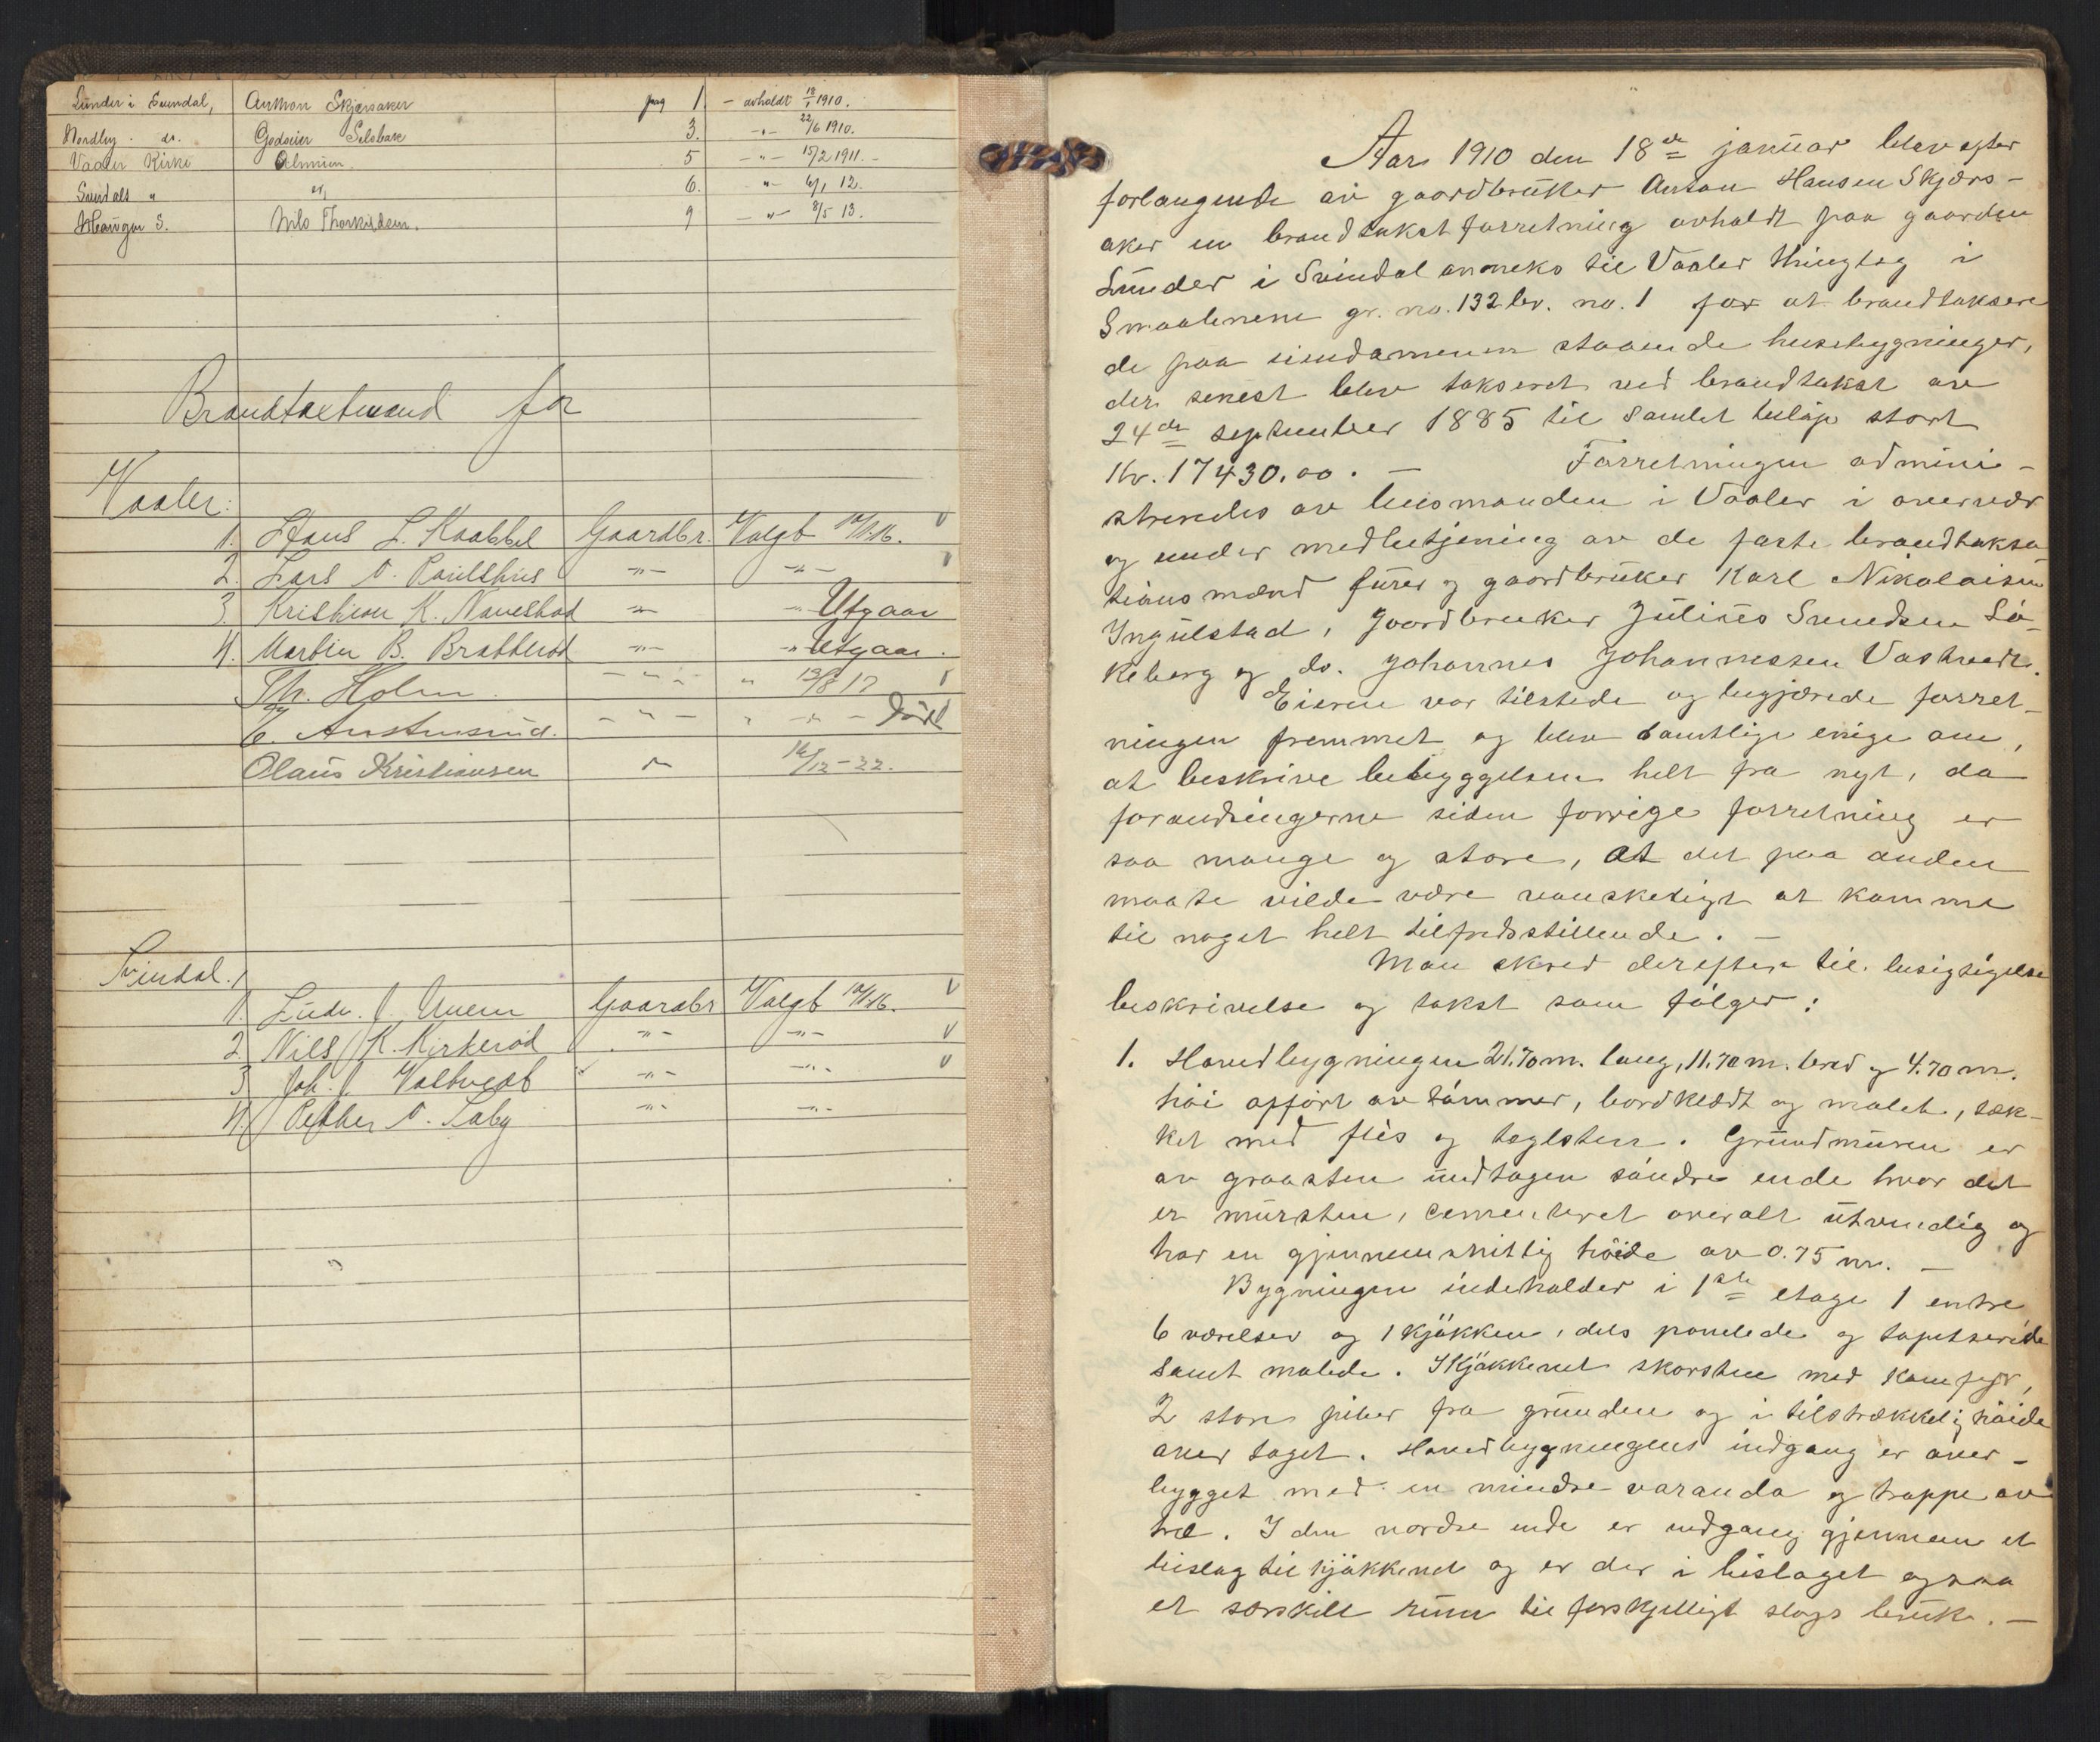 Lunder i Svindal, Anthon Skjærsaker pag 1. – avholdt 18/1 1910.
Nordby do. Selsbak 3. –„– 22/6 1910.
Vaaler Kirke Almuen 5 –„– 15/2 1911. –
Svindals „ do. 6. „– 6/1 12.
Haugen S. Nils Thorkildsen. 9 –„– 8/5 13.
for
Vaaler:
1. Hans L. Kaabbel Gaardbr. Valgt 14/1.16. V
2. Lars O. Poulshus –„– –„– V
3. Kristian K. Navestad –„– „– Utgaar
4. Martin B. Bratterød –„– „ Utgaar.
Th. Holm. – „ – „ 13/8 17 V
– „ – „ –„– Död
Olaus Kristiansen „ 16/12–22.
Svindal.
1. Ludv. J. Gaardbr Valgt 14/1.16. V
2. Nils K. Kirkerød –„– –„– V
3 Joh. J. Vastvedt –„– –„– V
4. Petter O. Taby –„– –„–
Aar 1910 den 18de januar blev efter
forlangende av gaardbruker Anton Hansen Skjærs-
aker en brandtakstforretning avholdt paa gaarden
Lunder i Svindal anneks til Vaaler thinglag i
Smaalenene gr. no. 132 br. no. 1 for at brandtaksere
de paa eiendommen staaende husebygninger,
der senest blev takseret ved brandtakst av
24de september 1885 til samlet beløp stort
Kr. 17430.00. – Forretningen admini-
streredes av lensmanden i Vaaler i overvær
og under medbetjening av de faste brandtaksa
tionsmænd fürer og gaardbruker Karl Nikolaisen
Ingulstad, gaardbruker Julius Svendsen Sö-
keberg og do. Johannes Johannessen Vastvedt.
Eieren var tilstede og begjærede forret-
ningen fremmet og blev samtlige enige om,
at beskrive bebyggelsen helt fra nyt, da
forandringerne siden forrige forretning er
saa mange og store, at det paa anden
maate vilde være vanskeligt at komme
til noget helt tilfredsstillende. –
Man skred derefter til besigtigelse
beskrivelse og takst som følger:
1. Hovedbygningen 21.70 m. lang, 11.70 m. bred og 4.70 m.
höi opfört av tömmer, bordklædt og malet, tæk-
ket med flis og taglsten. Grundmuren er
av graasten undtagen söndre ende hvor det
er mursten, cementeret overalt utvendig og
har en gjennemsnitlig höide av 0.75 m. –
Bygningen indeholder i 1ste etage 1 entre
6 værelser og 1 kjökken, dels panelede og tapetserede
samt malede. I kjökkenet skorsten med komfyr,
2 store piber fra grunden og i tilstrækkelig höide
over taget. Hovedbygningens indgang er over-
bygget med en mindre varanda og trappe av
træ. I den nordre ende er indgang gjennem et
bislag til kjökkenet og er der i bislaget ogsaa
et særskilt rum til forskjelligt slags bruk. –